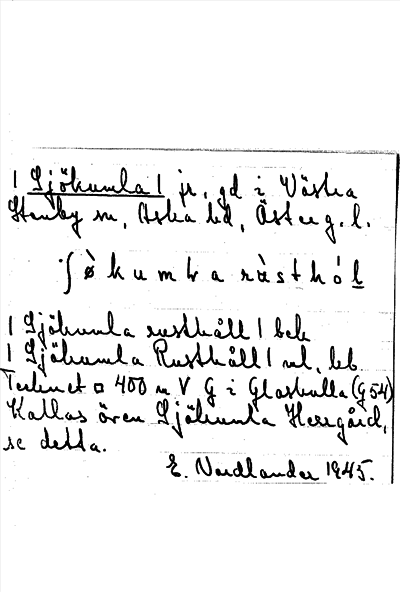 | Sjökumla | jr, gd i Västra
Stenby sn, Aska hd, Österg. l.
ʃø̀kumḷa ràsthól
| Sjökumla rusthåll | bek
| Sjökumla Rusthåll | ul, hb.
Tecknet □ 400 m V G i Glaskulla (G54)
Kallas även Sjökumla Herrgård,
se detta.
E. Nordlander 1945.